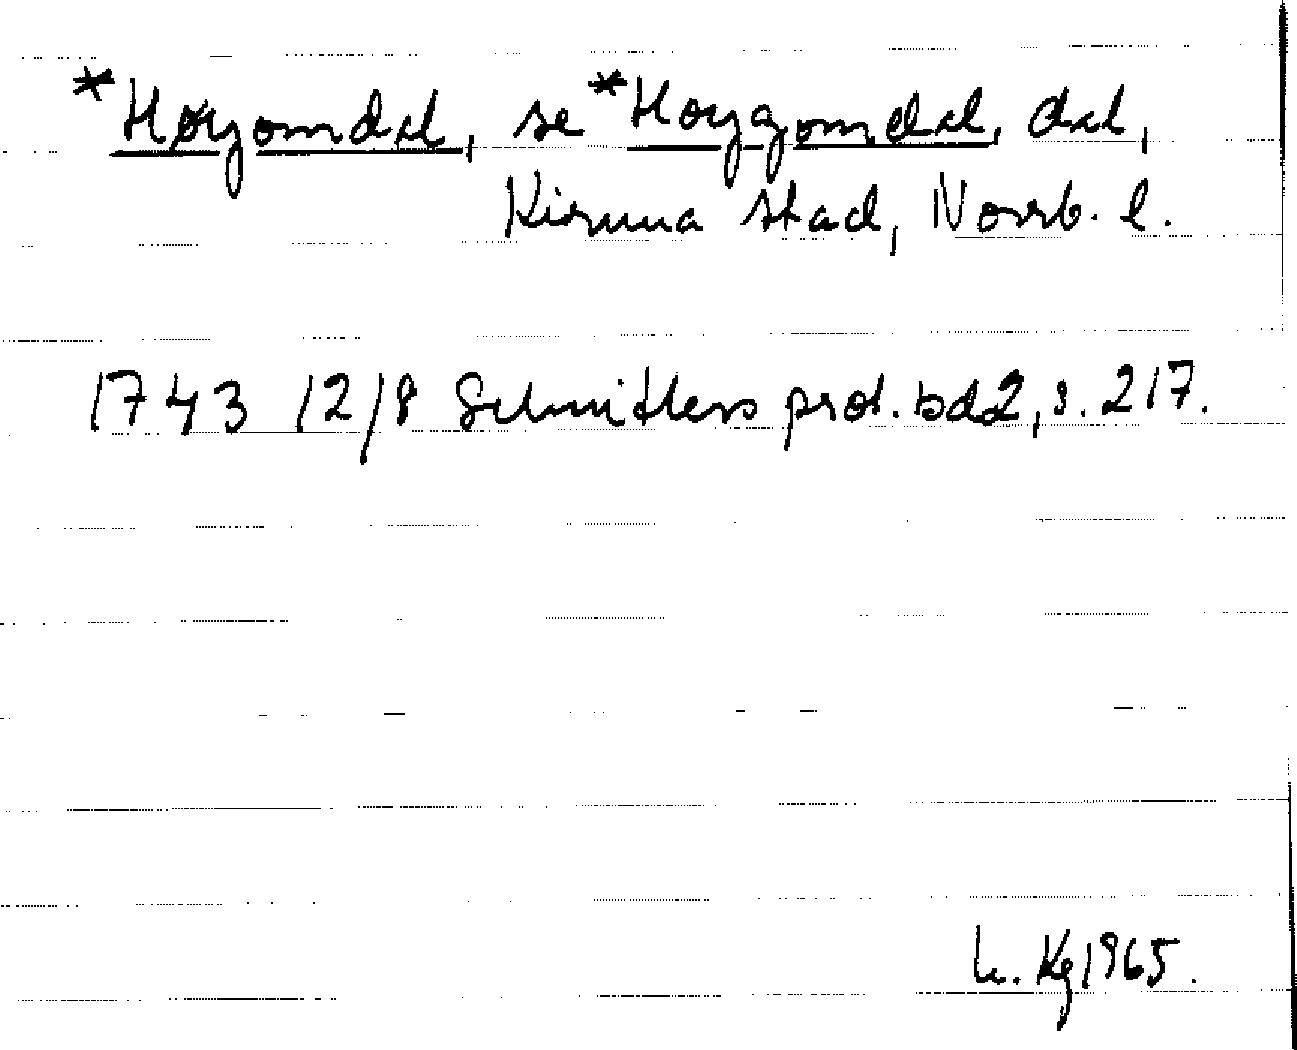 *Høyomdal, se *Hoygomdal, dal,
Kiruna stad, Norrb. l.
1743 12/8 Schnitlers prot. bd 2, s. 217.
h. Kg 1965.